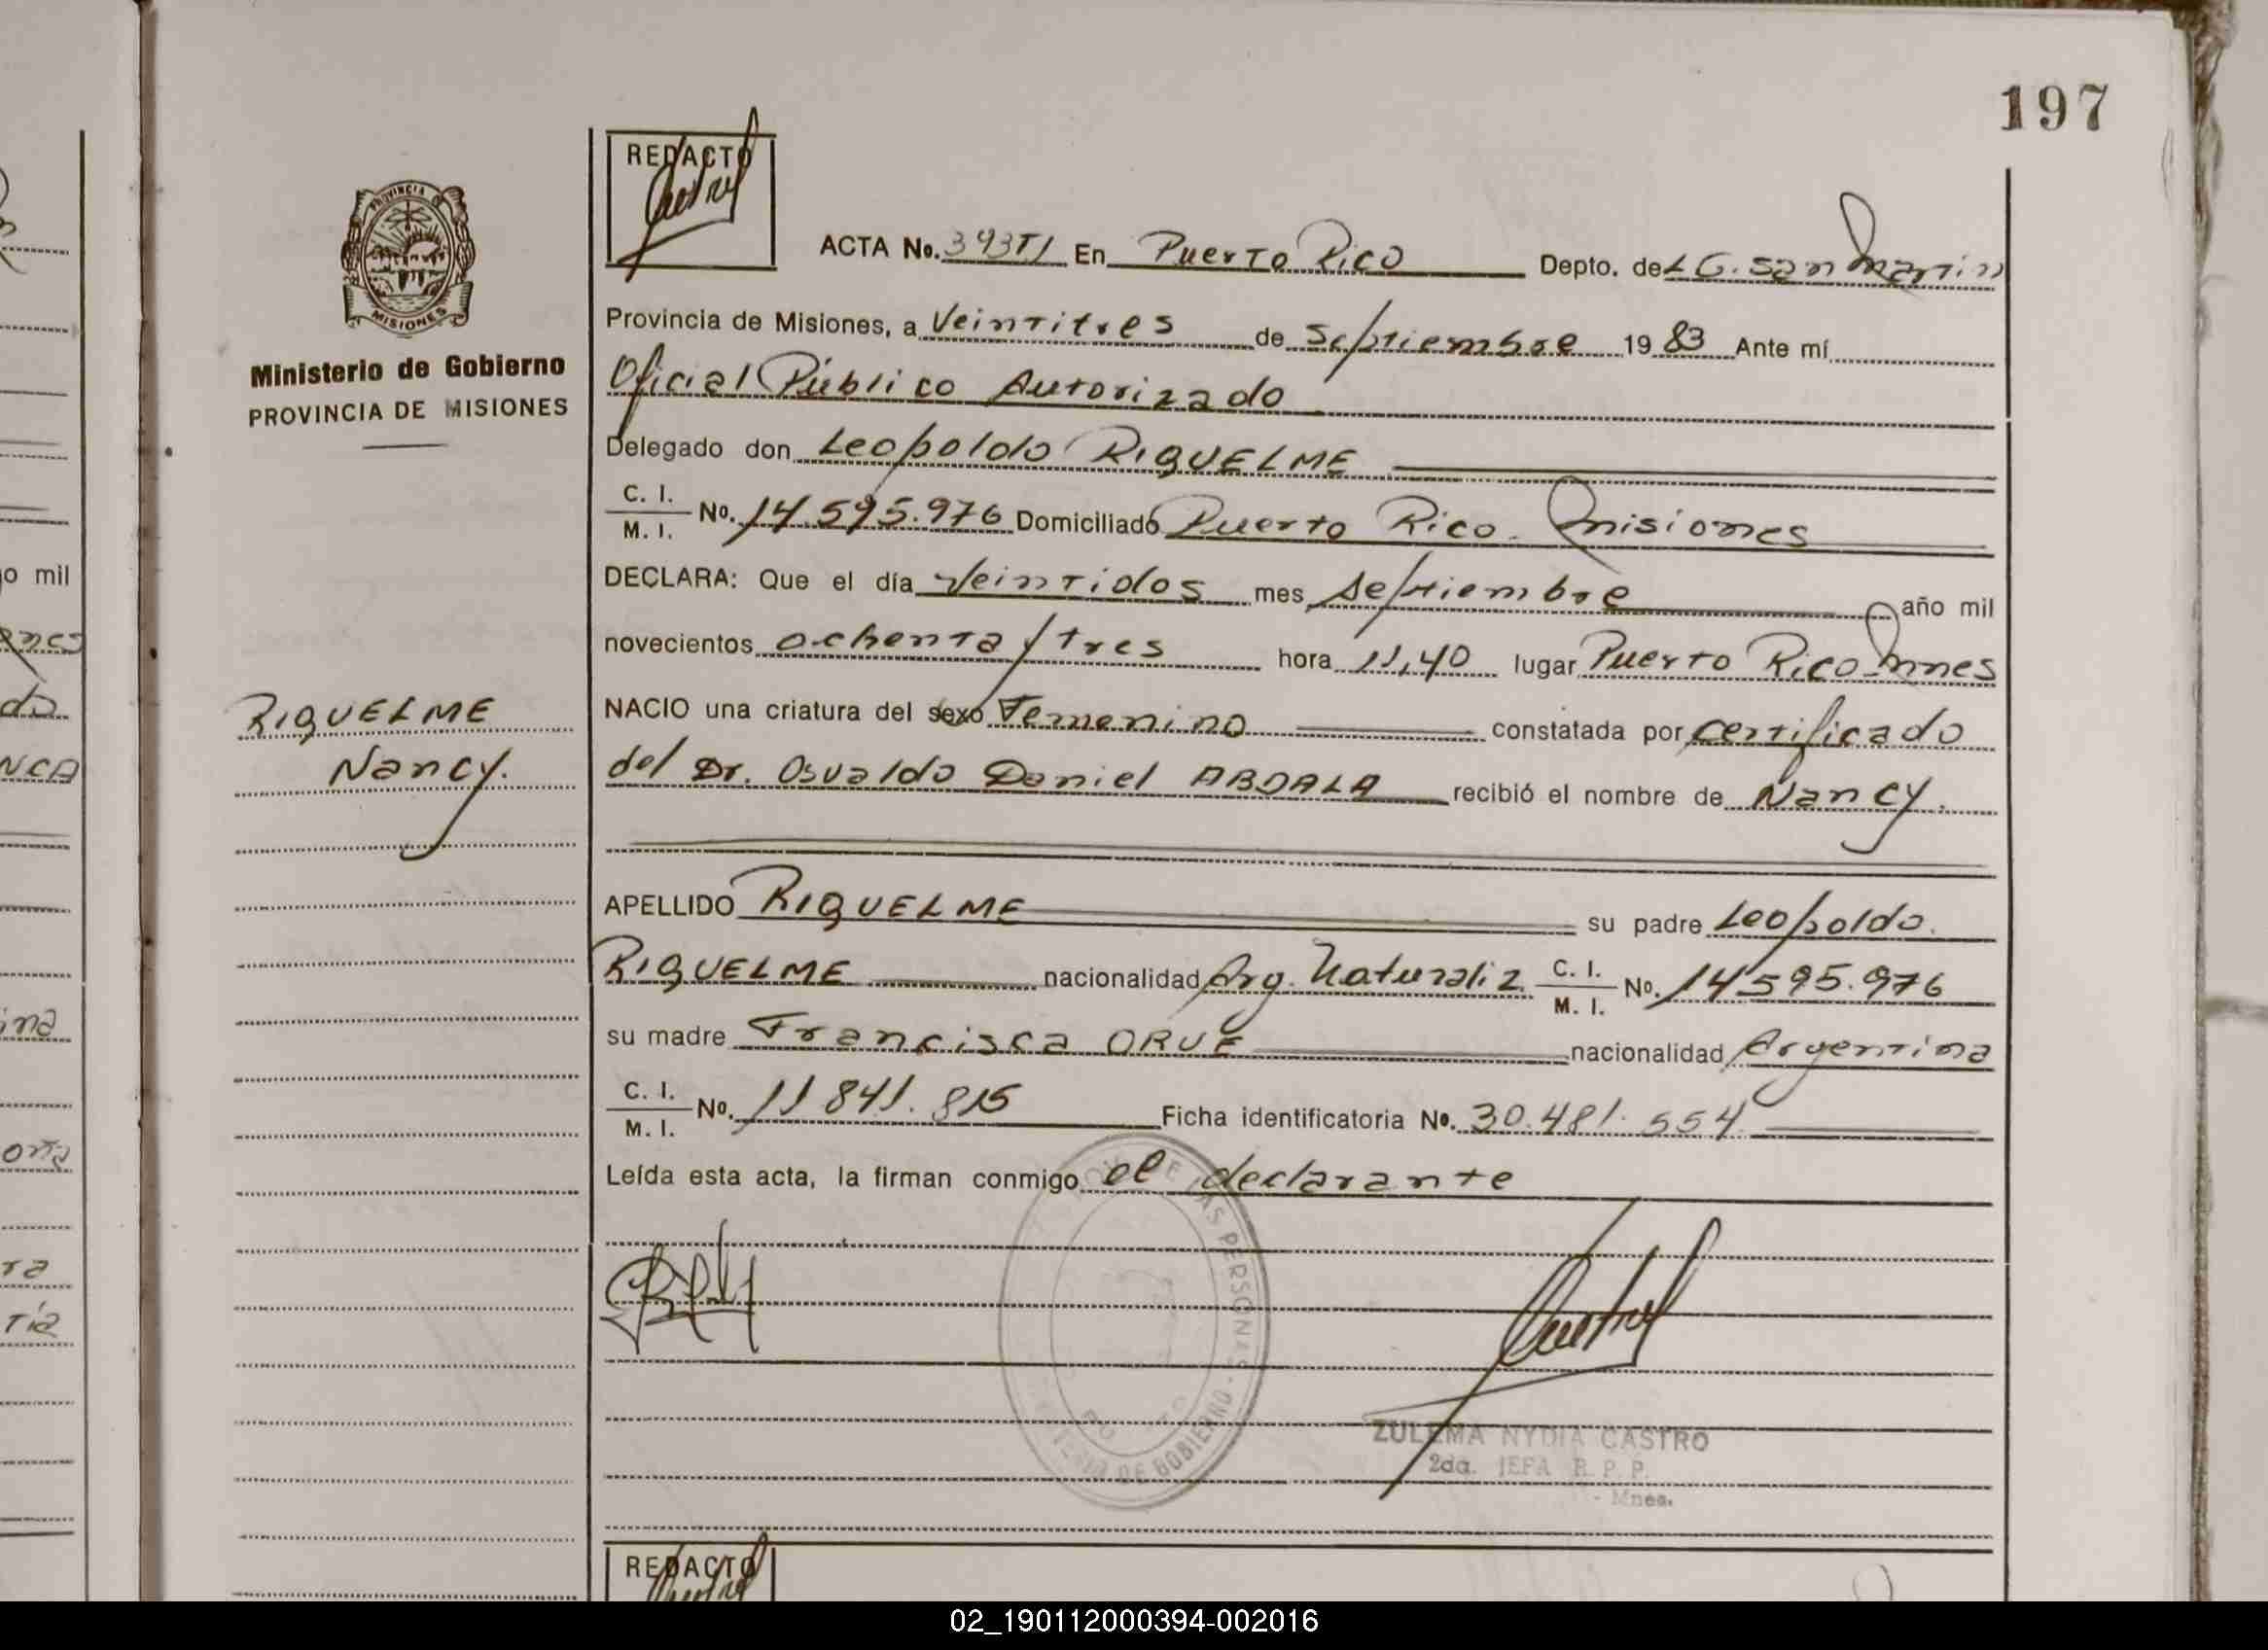 197
REDACTO
ACTA No. 393TI En Puerto Rico Depto. de L G. San Martin
PROVINCIA DE MISIONES
Provincia de Misiones, a Veintitres de Septiembre 19 83 Ante mí
Ministerio de Gobierno
PROVINCIA DE MISIONES
Oficial Público Autorizado
Delegado don Leopoldo RIQUELME
C. I. / M. I. No. 14.595.976 Domiciliado Puerto Rico - Misiones
DECLARA: Que el día Veintidos mes Septiembre año mil
novecientos ochenta y tres hora 11,40 lugar Puerto Rico Mnes
RIQUELME
Nancy.
NACIO una criatura del sexo Femenino constatada por certificado
del Dr. Osvaldo Daniel ABDALA recibió el nombre de Nancy.
APELLIDO RIQUELME su padre Leopoldo.
RIQUELME nacionalidad Arg. Naturaliz. C. I. / M. I. No. 14595.976
su madre Francisca ORUE nacionalidad Argentina
C. I. / M. I. No. 11841.815 Ficha identificatoria No. 30.481.554
Leída esta acta, la firman conmigo el declarante
ZULEMA NYDIA CASTRO
2da. JEFA R. P. P.
- Mnes.
REDACTO
02_190112000394-002016